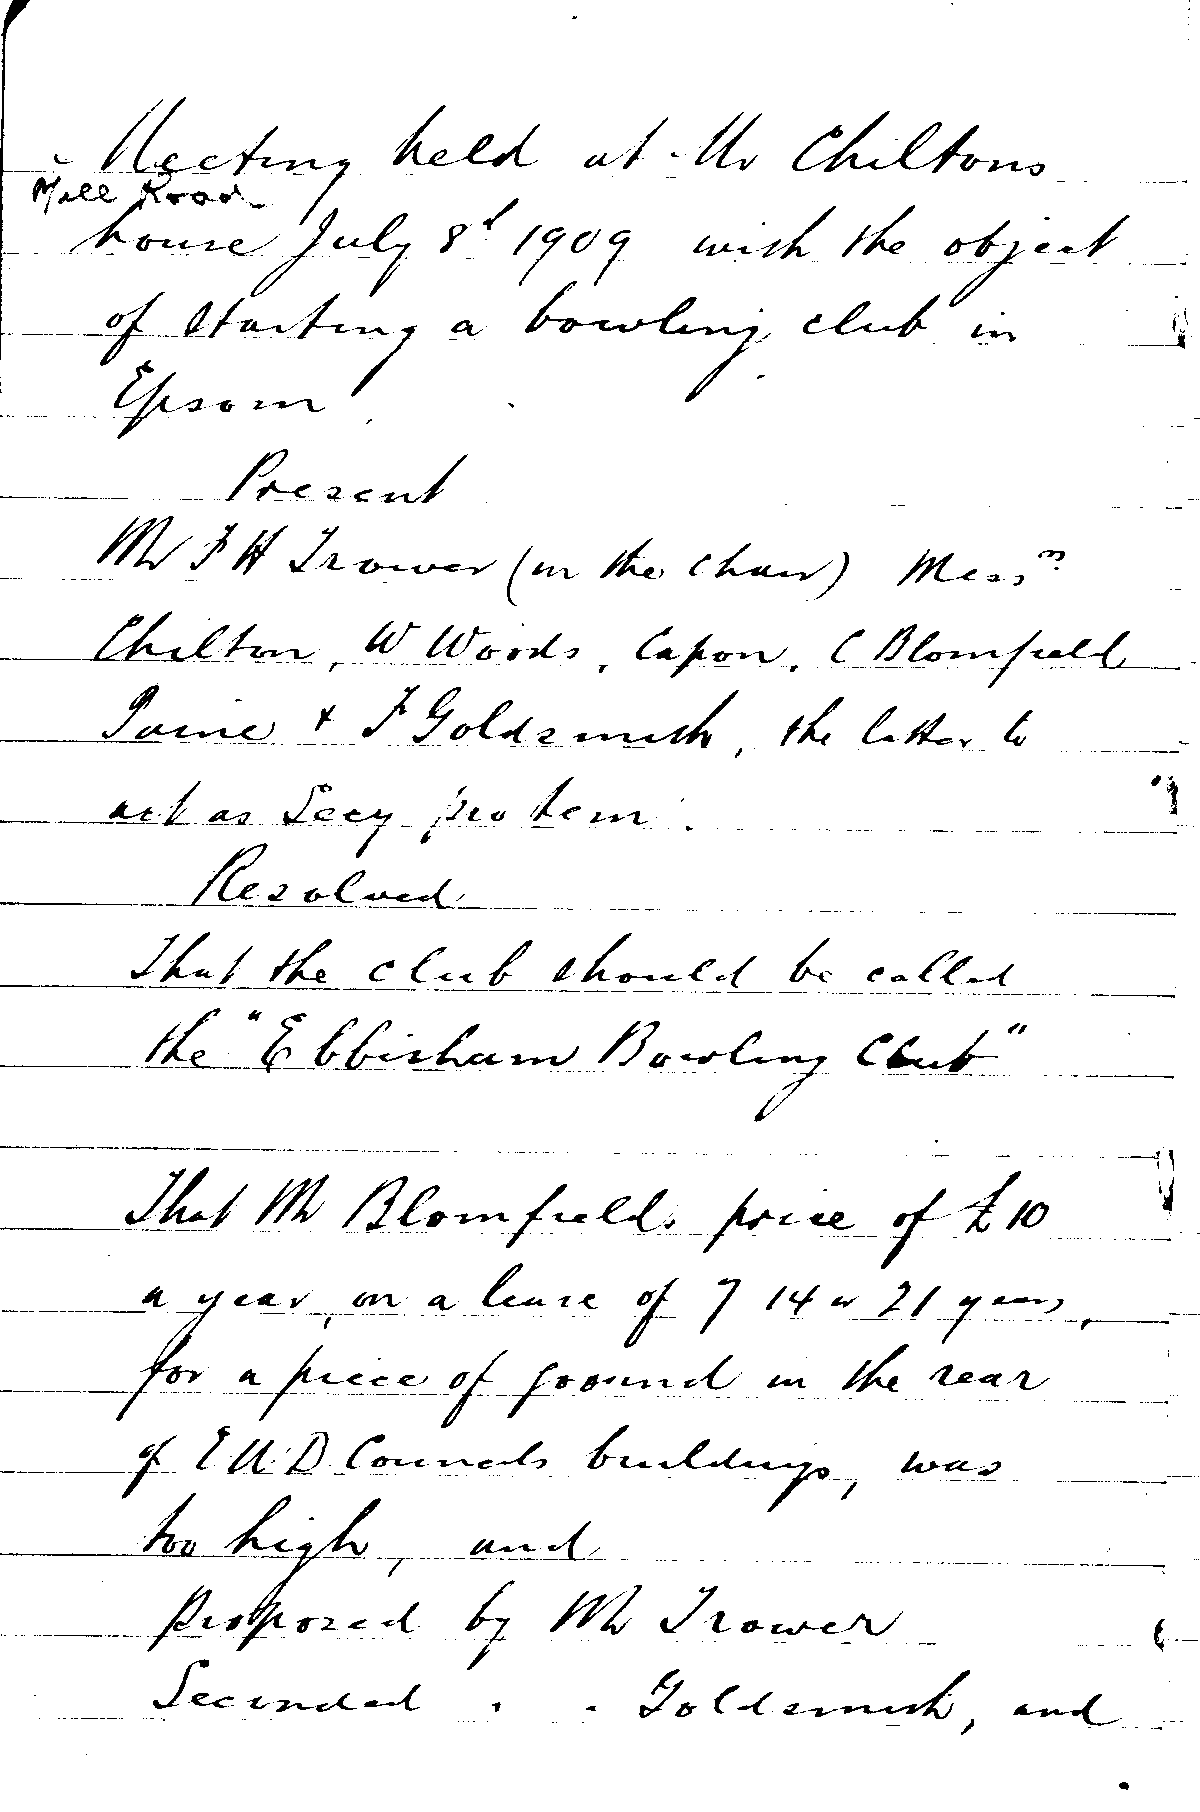 Meeting held at Mr Chiltons
Mill Road
house July 8th 1909 with the object
of starting a bowling club in
Epsom
Present
Mr F H Trower (in the chair) Messrs
Chilton, W Woods, Capon, C Blomfield
Paine & F Goldsmith, the latter to
act as Secy pro tem.
Resolved
That the club should be called
the "Ebbisham Bowling Club"
That Mr Blomfields price of £10
a year, on a lease of 7 14 or 21 years,
for a piece of ground in the rear
of E U. D Councils buildings, was
too high, and
proposed by Mr Trower
Seconded " " Goldsmith, and